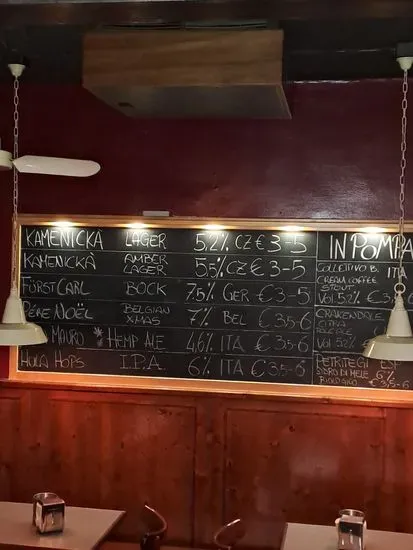 KAMENICKÁ LAGER 5,2% CZ € 3-5
KAMENICKÁ AMBER LAGER 5,5% CZ € 3-5
FÜRST CARL BOCK 7,5% GER € 3-5
PÈRE NOËL BELGIAN XMAS 7% BEL € 3,5-6
MAURO * HEMP ALE 4,6% ITA € 3,5-6
HOLA HOPS I.P.A. 6% ITA € 3,5-6
IN POMPA
COLLETTIVO B. ITA
CREAM COFFEE
STOUT
VOL 5,2% € 3,5
PETRITEGI ESP
SIDRO DI MELE 6%
BIOLOGICO € 3,5-6